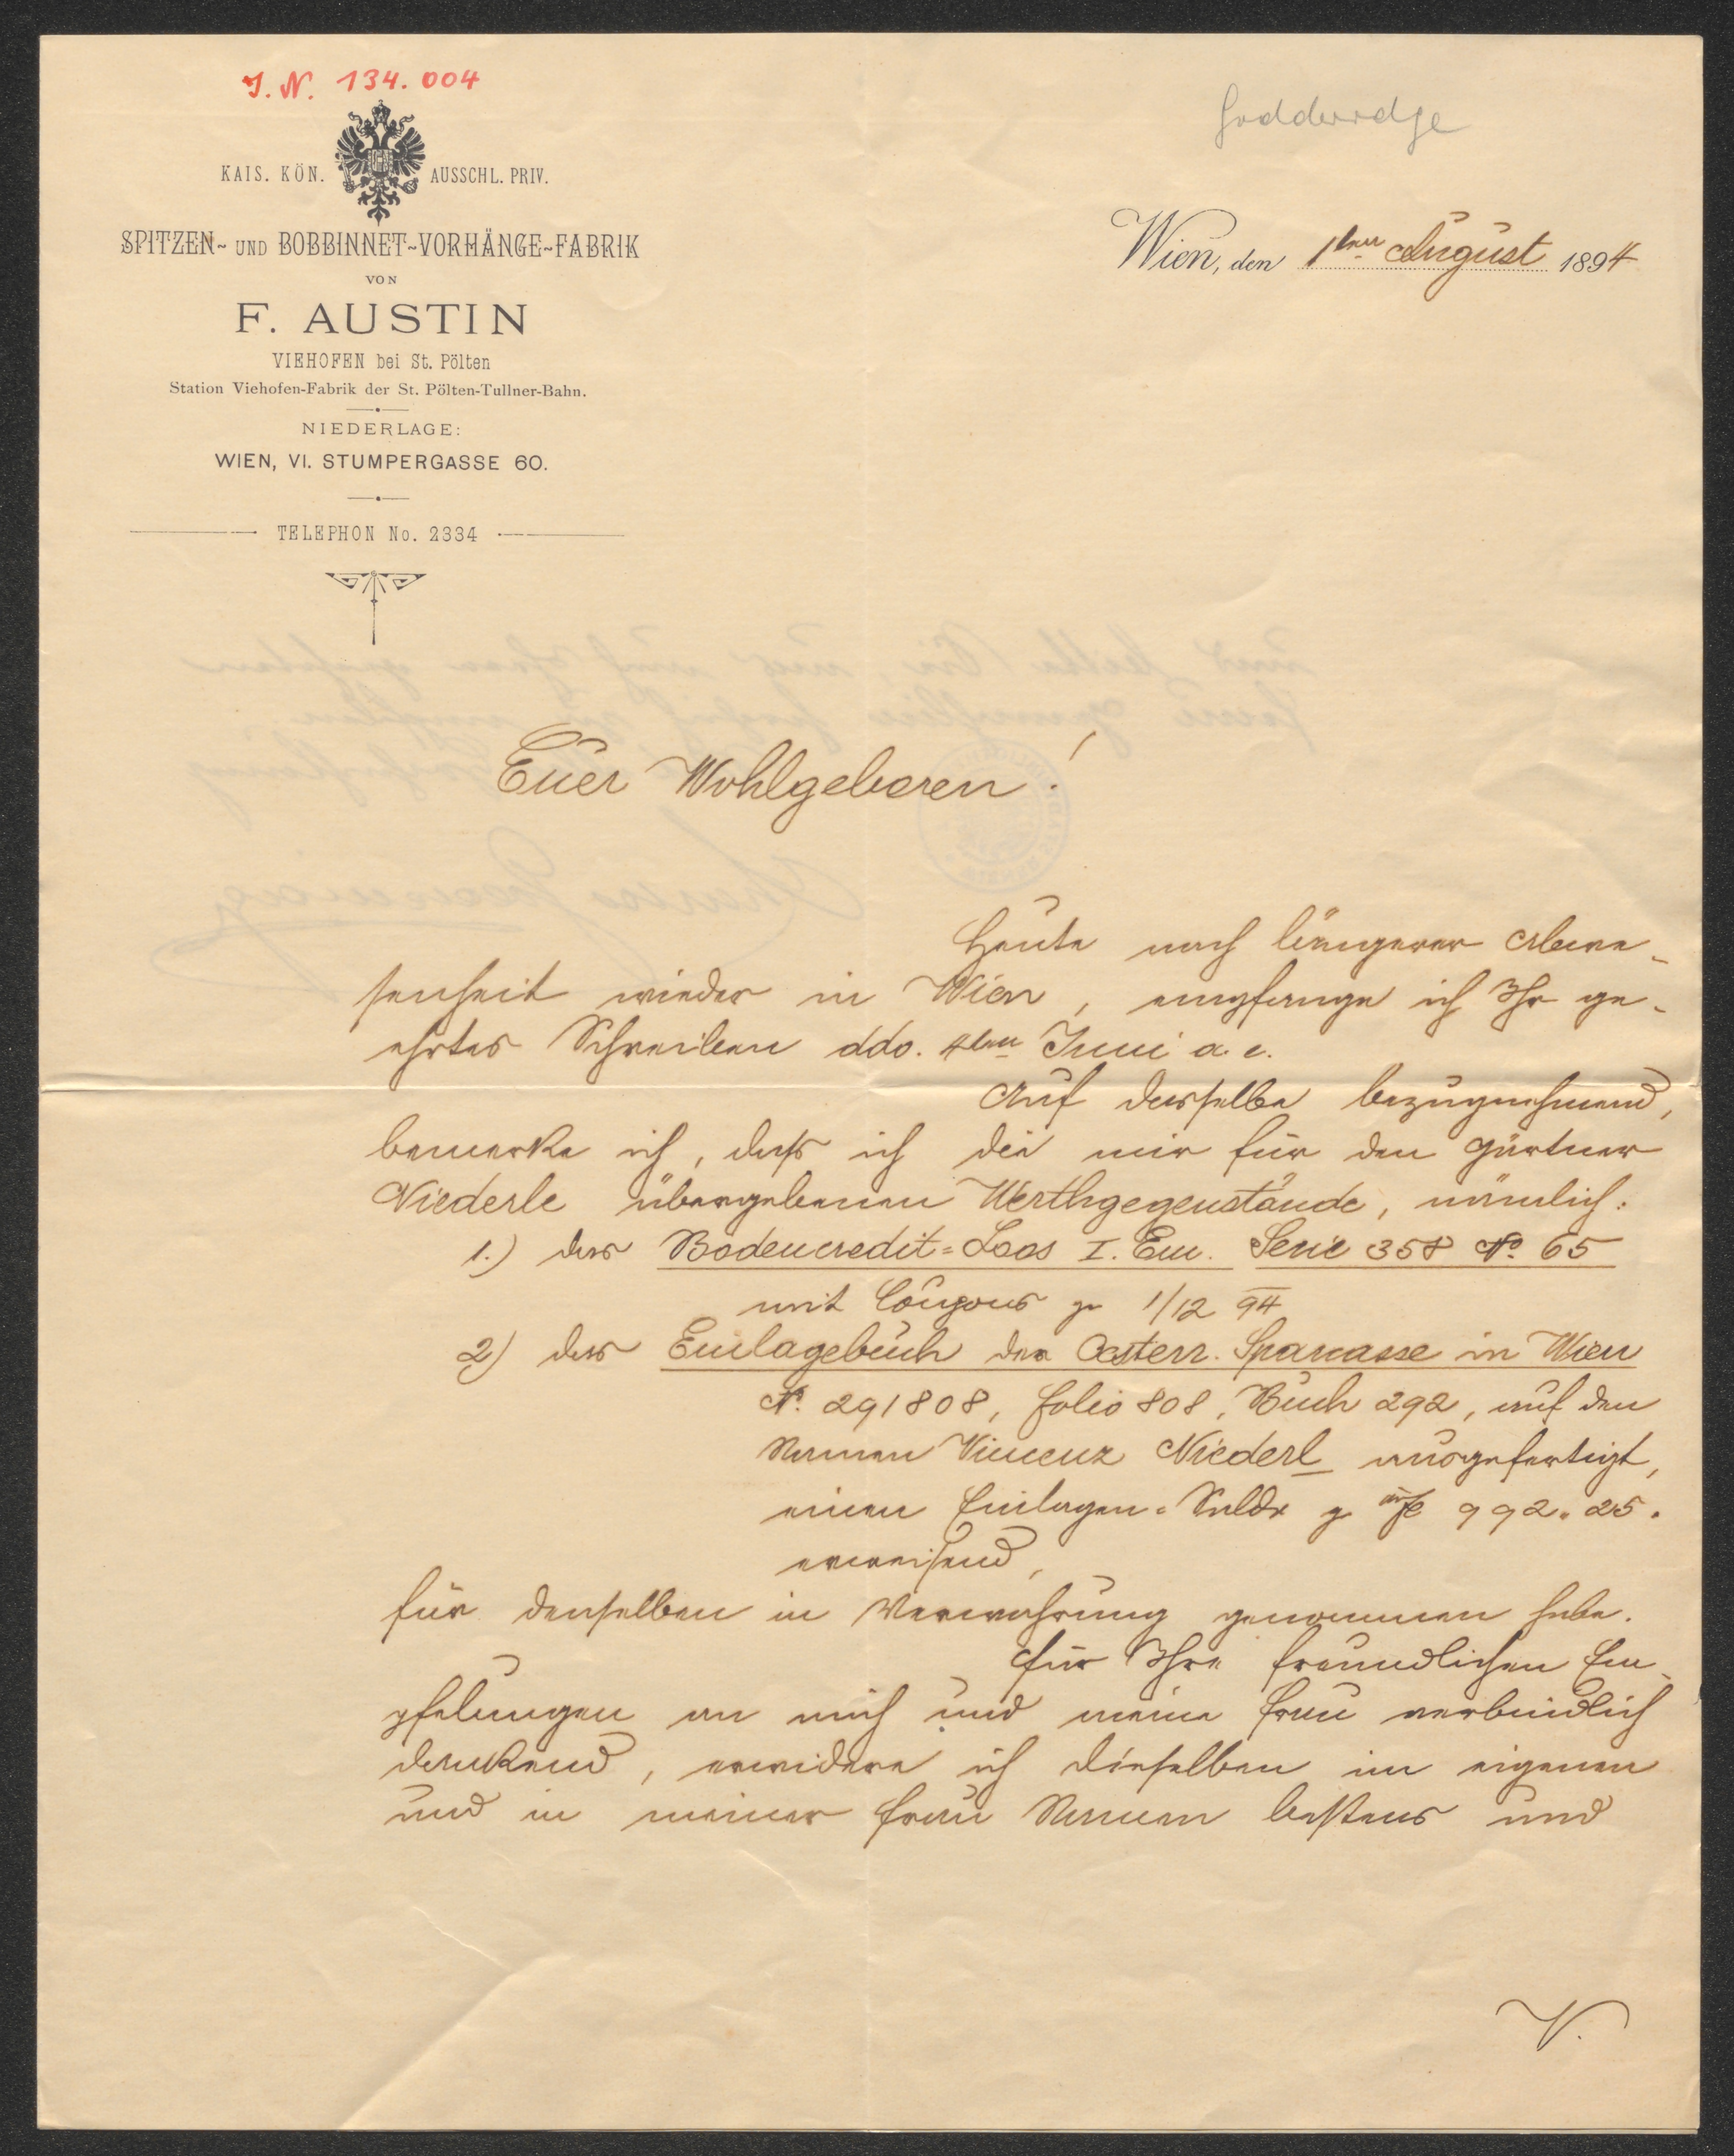 J. N. 134.004
KAIS. KÖN. AUSSCHL. PRIV.
SPITZEN- UND BOBBINNET-VORHÄNGE-FABRIK
VON
F. AUSTIN
VIEHOFEN bei St. Pölten
Station Viehofen-Fabrik der St. Pölten-Tullner-Bahn.
NIEDERLAGE:
WIEN, VI. STUMPERGASSE 60.
TELEPHON No. 2334
Wien, den 1ten August 1894
Euer Wohlgeboren!
Heute nach längerer Abwe-
senheit wieder in Wien, empfange ich Ihr ge-
ehrtes Schreiben ddo. 4ten Juni a. c.
Auf dasselbe bezugnehmend,
bemerke ich, dass ich die mir für den Gärtner
Niederle übergebenen Werthgegenstände, nämlich:
1.) das Bodencredit=Loos I. Em. Serie 358 No. 65
mit Coupons pr 1/12 94
2) das Einlagebuch der Oesterr. Sparcasse in Wien
No. 291808, folio 808, Buch 292, auf den
Namen Vincenz Niederl ausgefertigt,
einen Einlagen=Saldo pr 992.25.
erweisend,
für denselben in Verwahrung genommen habe.
Für Ihre freundlichen Em-
pfelungen an mich und meine Frau verbindlich
dankend, erwidere ich dieselben im eigenen
und in meiner Frau Namen bestens und